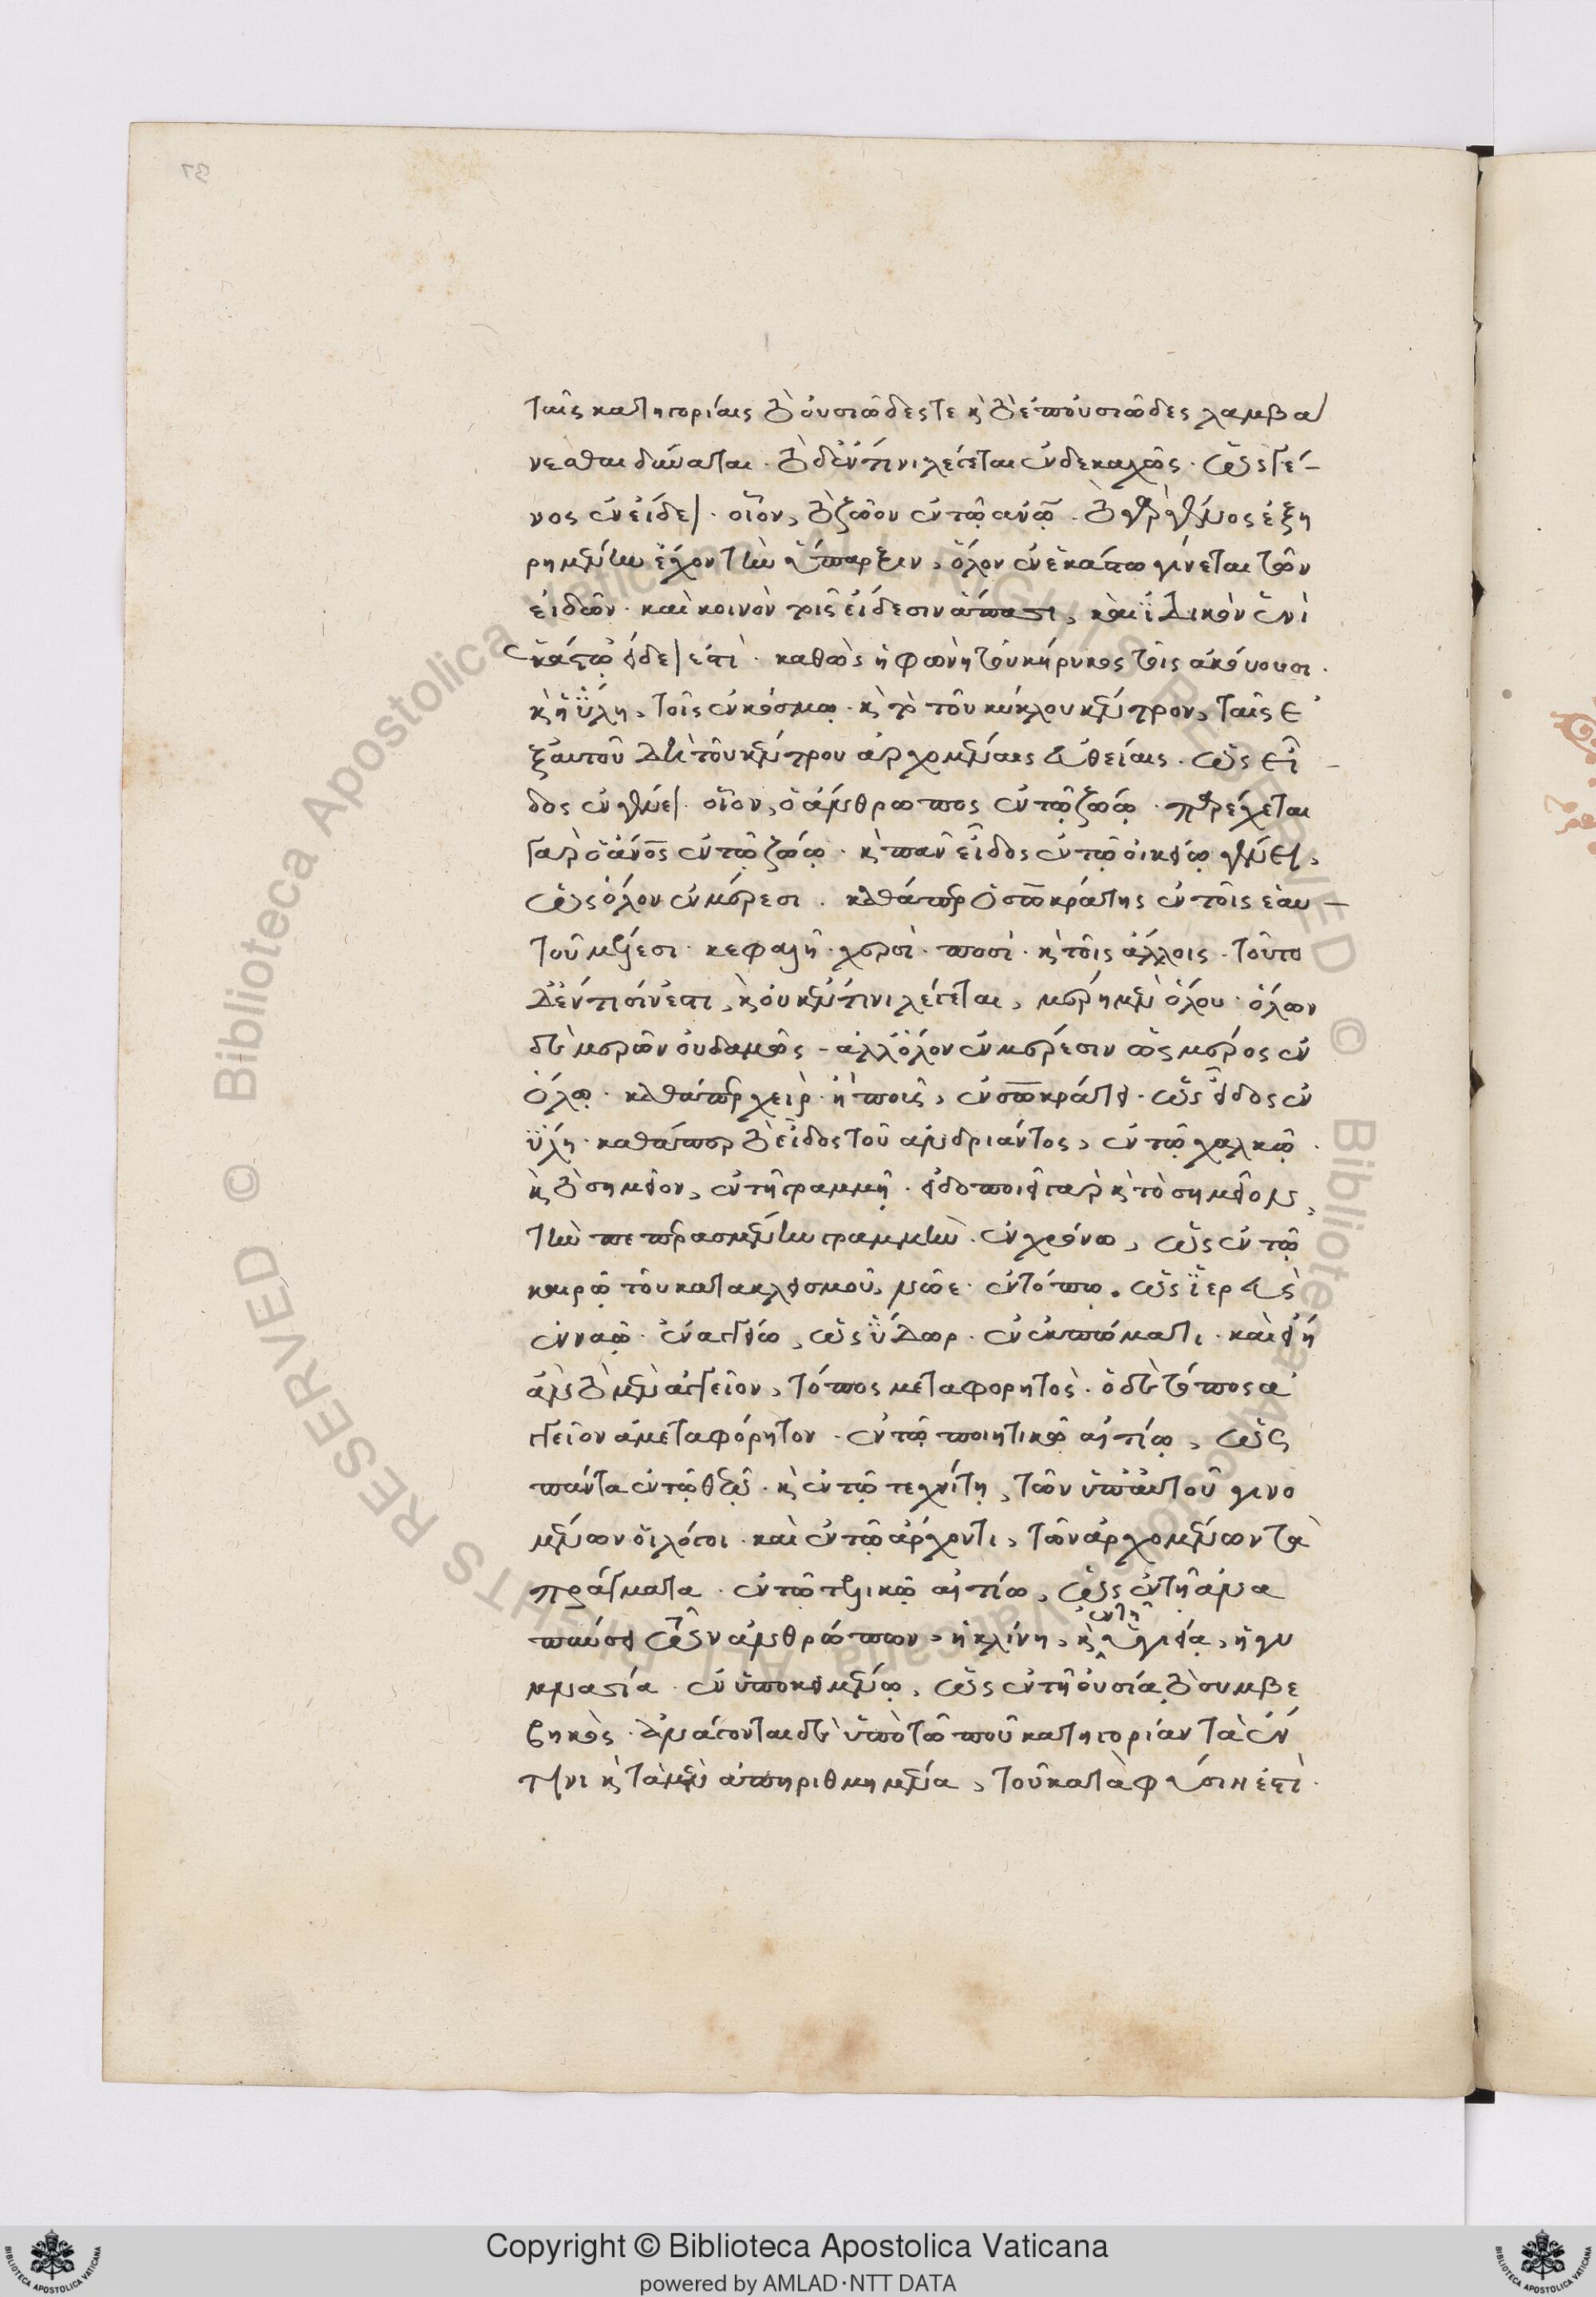 ταῖς κατηγορίαις τὸ οὐσιῶδες τε κ τὸ ἐπουσιῶδες λαμβά
νεσθαι δύναται. τὸ δ' ἔν τινι λέγεται ἑνδεκαχῶς. ὡς γέ-
νος ἐν εἴδει. οἷον, τὸ ζῶον ἐν τῷ ἀνῳ. τὸ γὰρ γένος ἐξη
ρημένην ἔχον τὴν ὕπαρξιν, ὅλον ἐν ἑκάστω γίνεται τῶν
εἰδῶν. καὶ κοινὸν τοῖς εἴδεσιν ἅπασι, καὶ ἰδικὸν ἑνὶ
ἑκάστῳ εἴδει ἐστὶ. καθὼς ἡ φωνὴ τοῦ κήρυκος τοῖς ἀκούουσι.
κ ἡ ὕλη, τοῖς ἐν κόσμῳ. κ τὸ τοῦ κύκλου κέντρον, ταῖς ἐ
ξ αὐτοῦ διὰ τοῦ κέντρου ἀρχομέναις εὐθείαις. ὡς εἶ-
δος ἐν γένει. οἷον, ὁ ἄνθρωπος ἐν τῷ ζώῳ. περιέχεται
γὰρ ὁ ἄνος ἐν τῷ ζώῳ. κ πᾶν εἶδος ἐν τῷ οἰκείῳ γένει,
ὡς ὅλον ἐν μέρεσι. καθάπερ ὁ σωκράτης ἐν τοῖς ἑαυ-
τοῦ μέρεσι. κεφαλῇ. χερσὶ. ποσὶ. κ τοῖς ἄλλοις. τοῦτο
δ' ἔν τισίν ἐστι, κ οὐκ ἔν τινι λέγεται, μέρη μὲν ὅλου. ὅλων
δὲ μερῶν οὐδαμῶς - ἀλλ' ὅλον ἐν μέρεσιν ὡς μέρος ἐν
ὅλῳ. καθάπερ χεὶρ. ἢ ποῦς, ἐν σωκράτει. ὡς εἶδος ἐν
ὕλη. καθάπερ τὸ εἶδος τοῦ ἀνδριάντος, ἐν τῷ χαλκῷ.
κ τὸ σημεῖον, ἐν τῇ γραμμῇ. εἰδοποιεῖ γὰρ κ τὸ σημεῖον,
τὴν πεπερασμένην γραμμὴν. ἐν χρόνω, ὡς ἐν τῷ
καιρῷ τοῦ κατακλεισμοῦ, νῶε. ἐν τόπω. ὡς ἱερεὺς
ἐν ναῷ. ἐν ἀγγείω, ὡς ὕδωρ. ἐν ἐκπώματι. καὶ εἴη
ἂν τὸ μὲν ἀγγεῖον, τόπος μεταφορητὸς. ὁ δὲ τόπος ἀγ
γεῖον ἀμεταφόρητον. ἐν τῷ ποιητικῷ αἰτίω, ὡς
πάντα ἐν τῷ θεῷ. κ ἐν τῷ τεχνίτῃ, τῶν ὑπ' αὐτοῦ γινο
μένων οἱ λόγοι. καὶ ἐν τῷ ἄρχοντι, τῶν ἀρχομένων τὰ
πράγματα. ἐν τῷ τελικῷ αἰτίω, ὡς ἐν τῇ ἀνα
παύσει τῶν ἀνθρώπων, ἡ κλίνη, κ ἐν τῇ ὑγιεία, ἡ γυ
μνασία. ἐν ὑποκειμένῳ, ὡς ἐν τῇ οὐσία τὸ συμβε
βηκὸς. ἀνάγονται δὲ ὑπὸ τῶ ποῦ κατηγορίαν τὰ ἔν
τινι κ τὰ μὲν ἀπηριθμημένα, τοῦ κατὰ φύσιν ἐστὶ.